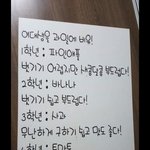 여대생을 과일에 비유!
1학년 : 파인애플
벗기기 어렵지만 새콤달콤 부드럽다!
2학년 : 바나나
벗기기 쉽고 부드럽다!
3학년 : 사과
무난하게 구하기 쉽고 맛도 좋다!
4학년 : 토마토